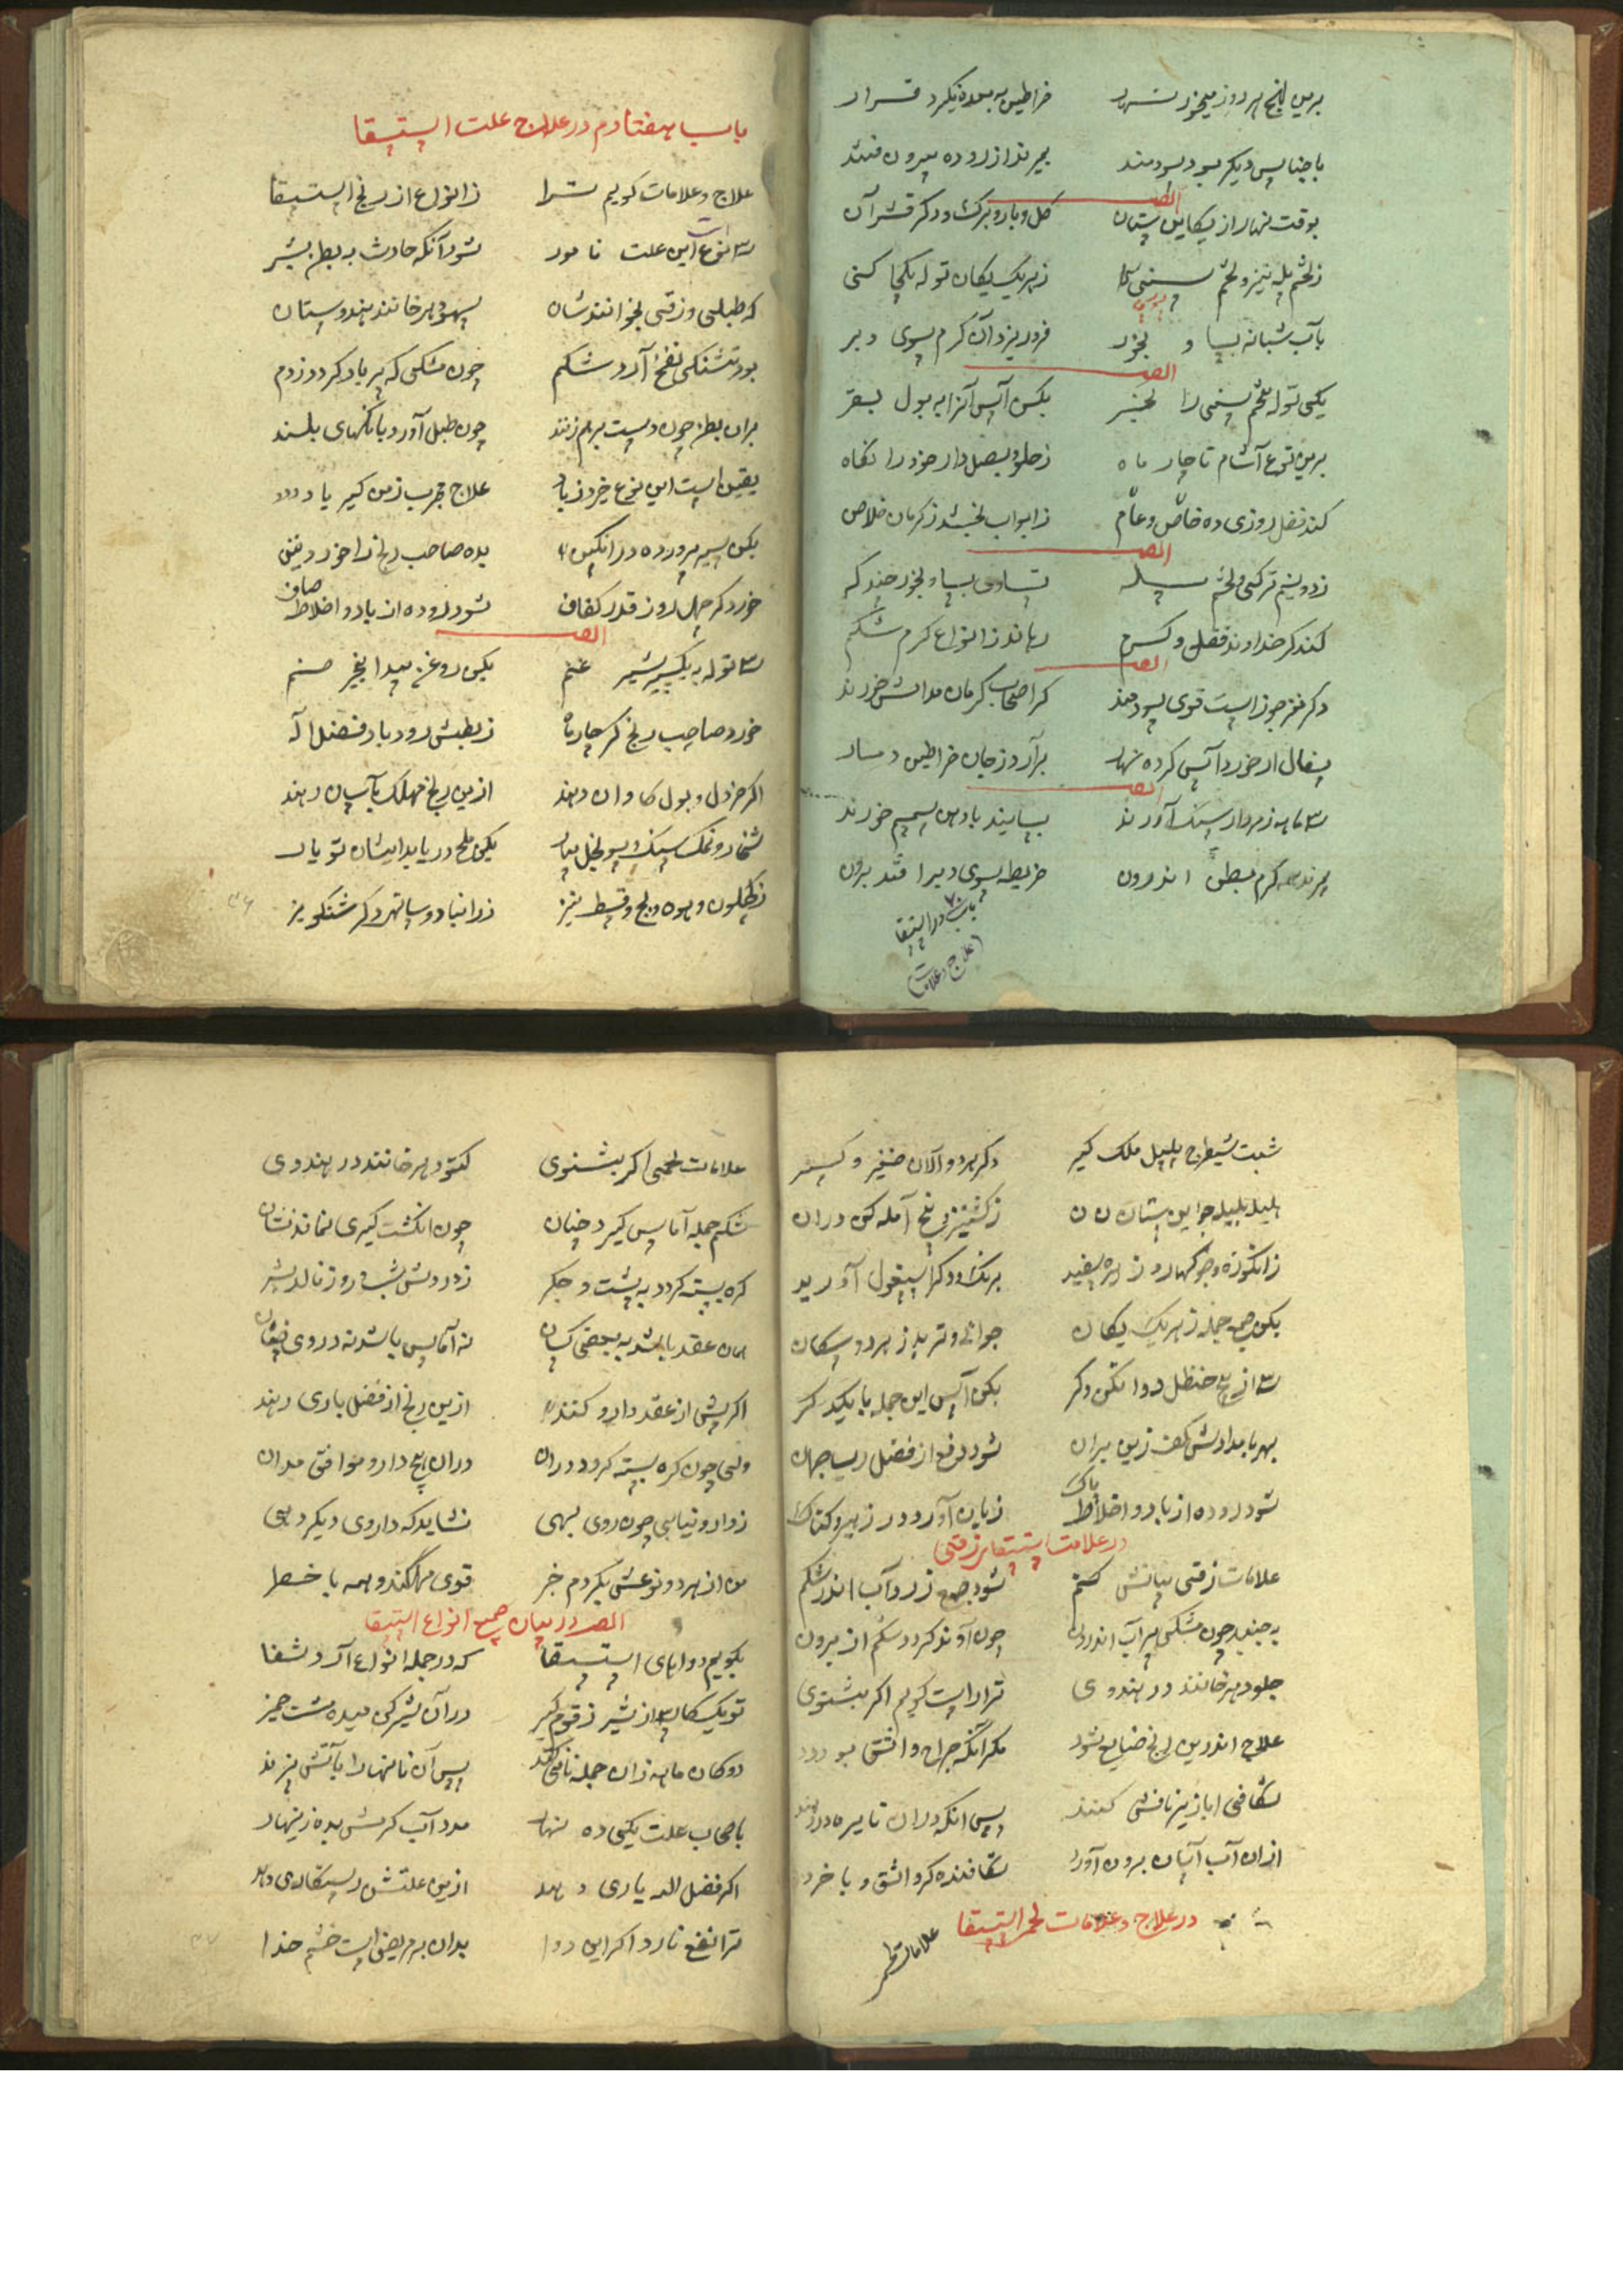 برین پنج هر روز میخور نهار خراطین به معده نگیرد قرار
با جناس دیگر بود سودمند بمیرند از روده بیرون فتند
ایضا
بوقت نهار از یکاین ستان گل و بار و برگ و دگر قشر آن
ز تخم پله نیز و تخم سنی ز هر یک یکان توله یکجا کنی
بآب شبانه بسا و بخور فرو ریزد آن کرم سوی دبر
ایضا
یکی توله تخم سنی را بکن آس آنرا به بول بقر
برین نوع آشام تا چار ماه ز حلو و بصل دار خود را نگاه
کند فضل روزی ده خاص و عام ز ابواب بخشد ز کرمان خلاص
ایضا
ز دونیم ترکی و تخم پله تساوی بسا و بخور
کند گر خداوند فضل و کرم رهاند ز انواع کرم شکم
ایضا
دگر مغز جوز است قوی سودمند گر اصحاب کرمان مدامش خورند
سفال ار خورد آس کرده نهار برآرد ز جان خراطین دمار
ایضا
۳ ماهه ز مردار سنگ آورند بسایند با دهن سمسم خورند
بمیرند همه کرم بطن اندرون خریطه بسوی دبر افتد برون
باب ۷۰ در استسقا
(علاج و علامات)
باب هفتادم در علاج علت استسقا
علاج و علامات گویم ترا ز انواع از رنج استسقا
۳ انوع است این علت نامور شود آنکه حادث به بطن بشر
که طبلی و زقی بخوانندشان بهودر خوانند هندوستان
بود تشنگی نفخ آرد شکم چون مشکی که پر باد گردد ز دم
بران بطن چون دست بر هم زنند چون طبل آورد بانگهای بلند
یقین است این نوع خیزد ز باد علاج مجرب ز من گیر یاد
بکن سیر پرورده در انگبین بده صاحب رنج را خور
خورد گر چهل روز قدر کفاف شود روده از باد و اخلاط صاف
ایضا
۳ توله به یکسیر شیر غنم بکن روغن بیدانجیر ضم
خورد صاحب رنج گر چار ماه ز بطنش رود باد فضل اله
اگر خردل و بول گاوان دهند ازین رنج مهلک بآسان رهند
شخار و نمک سنگ و سونچل بیار یکی ملح دریا بدایشان تو یار
ز کچلون و بوه و بچ و قسط نیز ز رانیا دو
۳۶
شبت شیطرج پلپل ملک گیر دگر هر دو آلان صغیر و کبیر
هلیله بلیله جواین ستان ز کشنیز بی بیخ آمله کن دران
ز انگوزه وجوکهار و زیره سفید برنگ و دگر اسپغول آورید
بکن جمع جمله ز هر یک یکان جوانی و تربد ز هر دو سکان
۳ از بیخ حنظل دوا کن دگر بکن آس این جمله با یکدگر
بهر بامدادش کف زین بران شود دفع از فضل رب جهان
شود روده از باد و اخلاط پاک زیان آورد در زهیر و
در علامت استسقای زقی
علامات زقی بیانش کنم شود جمع زرد آب اندر شکم
به جنبد چون مشکی پر آب اندرون چون آوند گردد شکم از برون
جلودر خوانند در هندوی ترا راست گویم اگر بشنوی
علاج اندرین رنج ضایع شود مگر آنکه جراح دانش بود
شکافی ابا زیر نافش کنند پس آنکه دران نایره در نهند
ازان آب آسان برون آورد شکافنده گر دانش و با خرد
در علاج و علامات لحمی استسقا
علامات لحمی
علامات لحمی اگر بشنوی کتودر خوانند در هندوی
شکم جمله آماس گیرد چنان چون انگشت گیری نماند نشان
گره بسته گردد به پشت و جگر ز دردش شب و روز نالد بشر
همان عقد باشد به بعضی کسان نه آماس باشد نه در وی نشان
اگر پیش از عقد دارو کنند ازین رنج از فضل باری رهند
ولی چون گره بسته گردد دران دران هیچ دارو موافق مدان
ز دارو نیابی چون روی بهی نشاید که داروی دیگر دهی
من از هر دو نوعش بکردم خبر قوی مهلکند و همه با خطر
ایضا در بیان جمیع انواع استسقا
بگویم دواهای استسقا که در جمله انواع آرد شفا
تو یک سکان از شیر زقوم گیر در آن شیر کن میده مشت خمیر
دوگان ماهه زان جمله نان کنند پس آن نانها را بآتش پزند
باصحاب علت یکی ده نهار مده آب گرمش بده زینهار
اگر فضل الله یاری دهد ازین علتش رستگاری دهد
ترا نفع نارد اگر این دوا بدان بر مریض است خشم خدا
۳۷